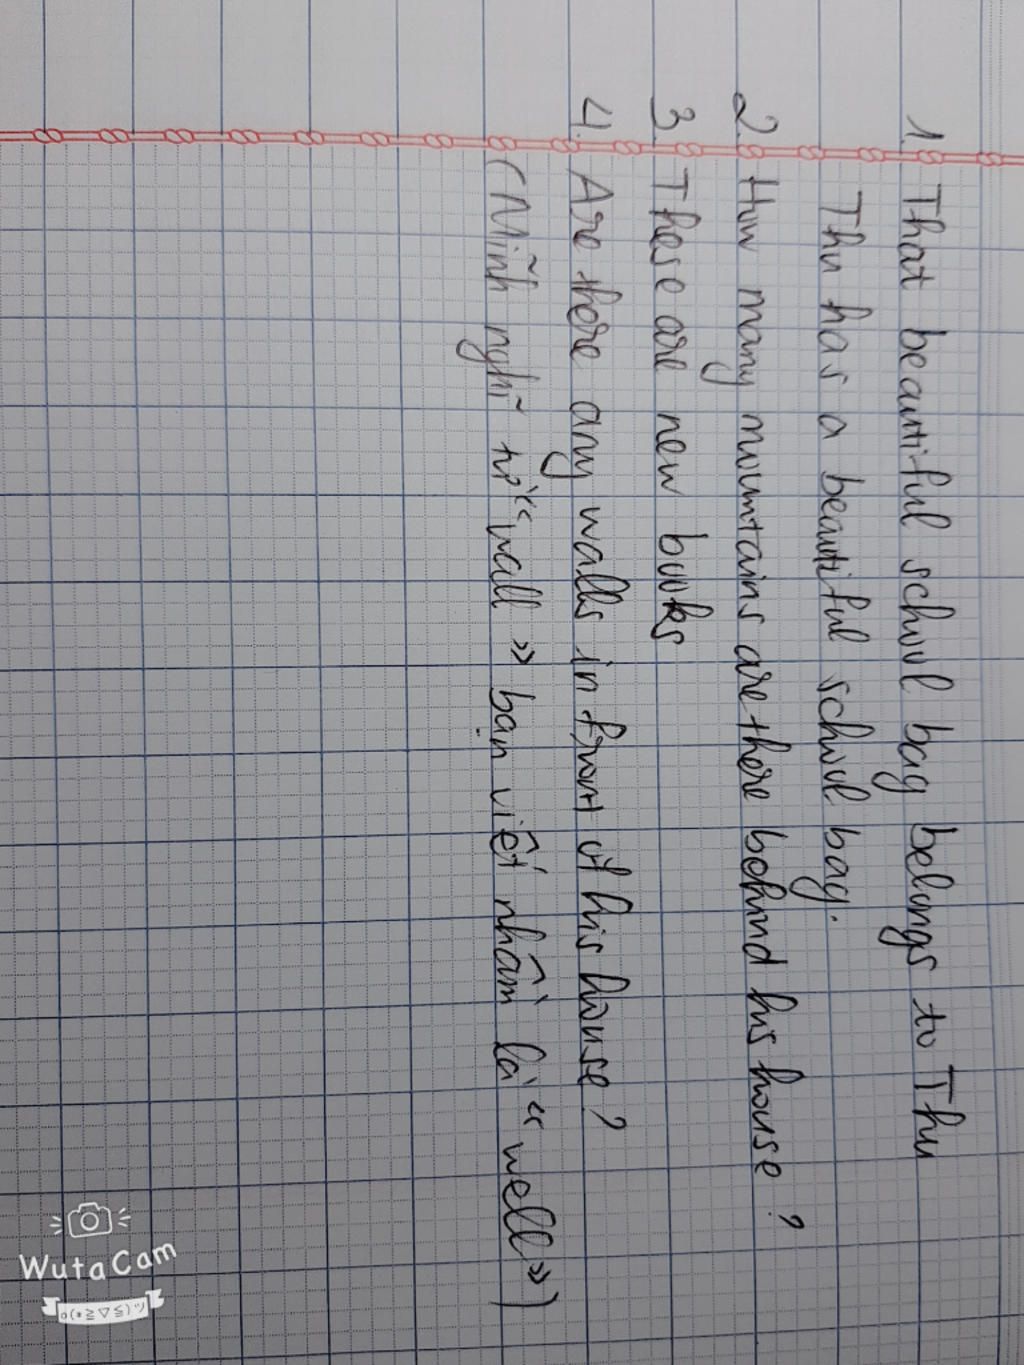 1. That beautiful school bag belongs to Thu
Thu has a beautiful school bag.
2. How many mountains are there behind his house?
3. These are new books
4. Are there any walls in front of his house?
(Mình nghĩ từ "wall" bạn viết nhầm là "well")
WutaCam